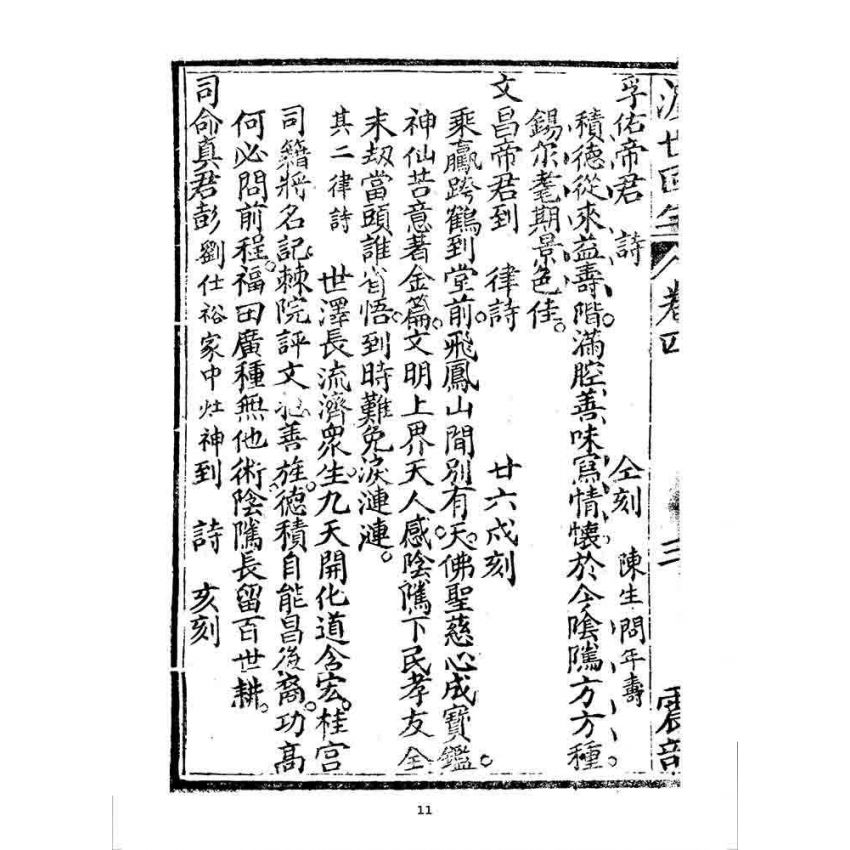 世回生 卷四 三 震部
孚佑帝君 詩 仝刻 陳生問年壽
積德從來益壽階。滿腔善味寫情懷。於今陰騭方方種。
錫尔耄期景色佳。
文昌帝君到 律詩 廿六戍刻
乘跨鶴到堂前。飛鳳山間別有天。佛聖慈心成寶鑑。
神仙苦意著金篇。文明上界天人感。陰騭下民孝友全
末刼當頭誰省悟。到時難免淚漣漣。
其二律詩 世澤長流濟衆生。九天開化道含宏。桂宮
司籍將名記。棘院評文善旌。德積自能昌後裔。功高
何必問前程。福田廣種無他術。陰騭長留百世耕。
司命真君彭 劉仕裕家中灶神到 詩 亥刻
11